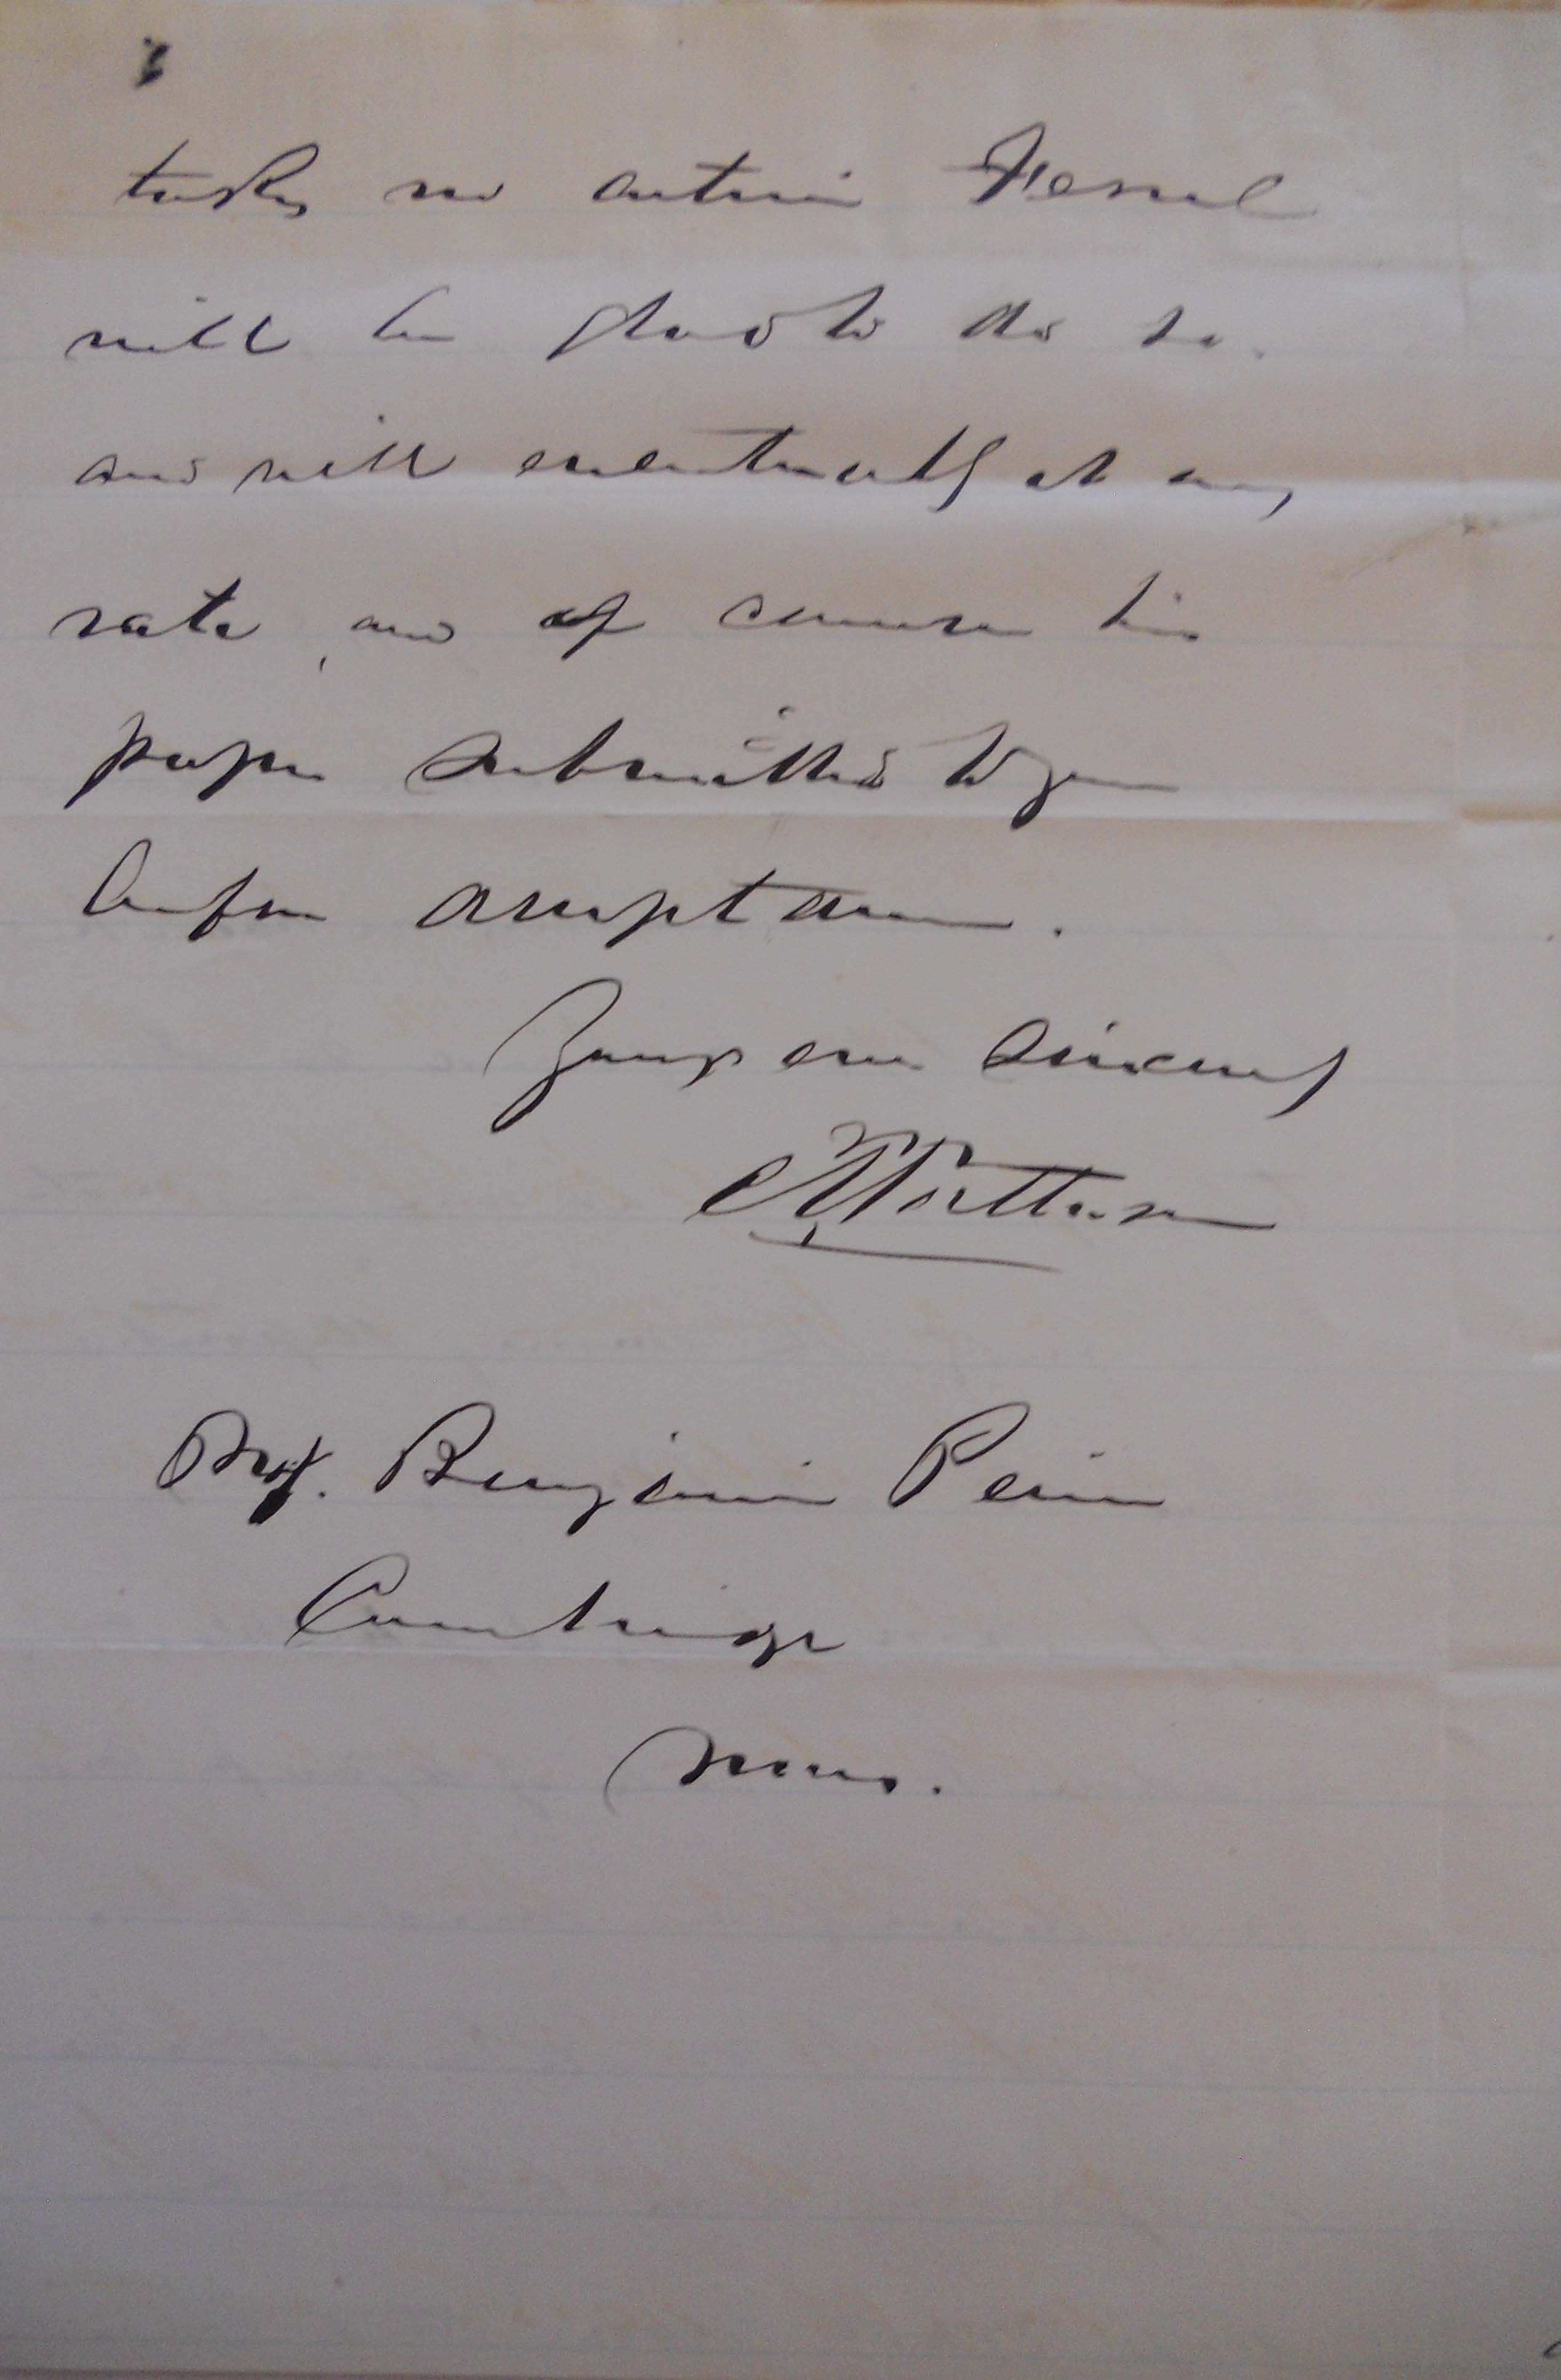 takes no action Ferrel
will be glad to do so.
and will eventually at any
rate, and of course his
paper submitted to you
before acceptance.
Yours ever sincerely
C P Patterson
Prof. Benjamin Peirce
Cambridge
Mass.